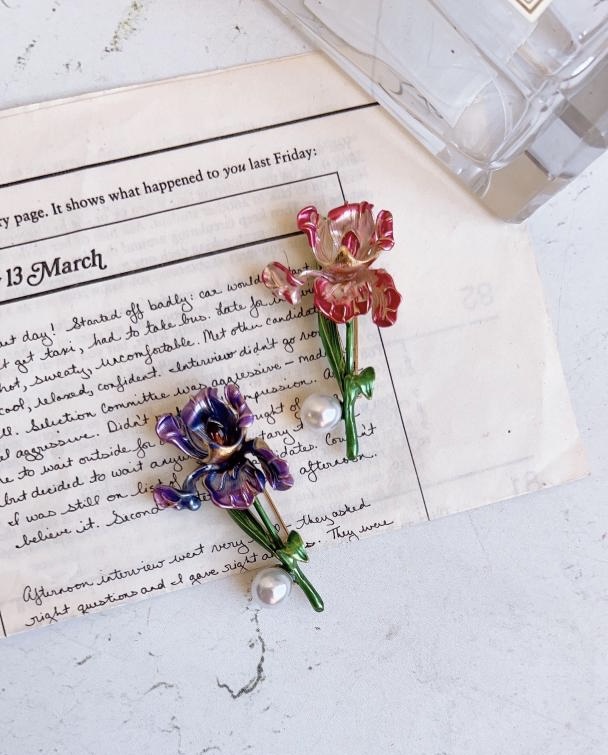 ry page. It shows what happened to you last Friday:
13 March
ut day! Started off badly: car would
t get taxi, had to take bus. Late for
hot, sweaty, uncomfortable. Met other candidat
cool, relaxed, confident. Interview didn't go
Selection committee was aggressive – mad
aggressive. Didn't impression. A
e to wait outside for right of
but decided to wait any dates. Couldn't
I was still on list afternoon.
believe it. Second
Afternoon interview went very they asked
right questions and I gave right They were